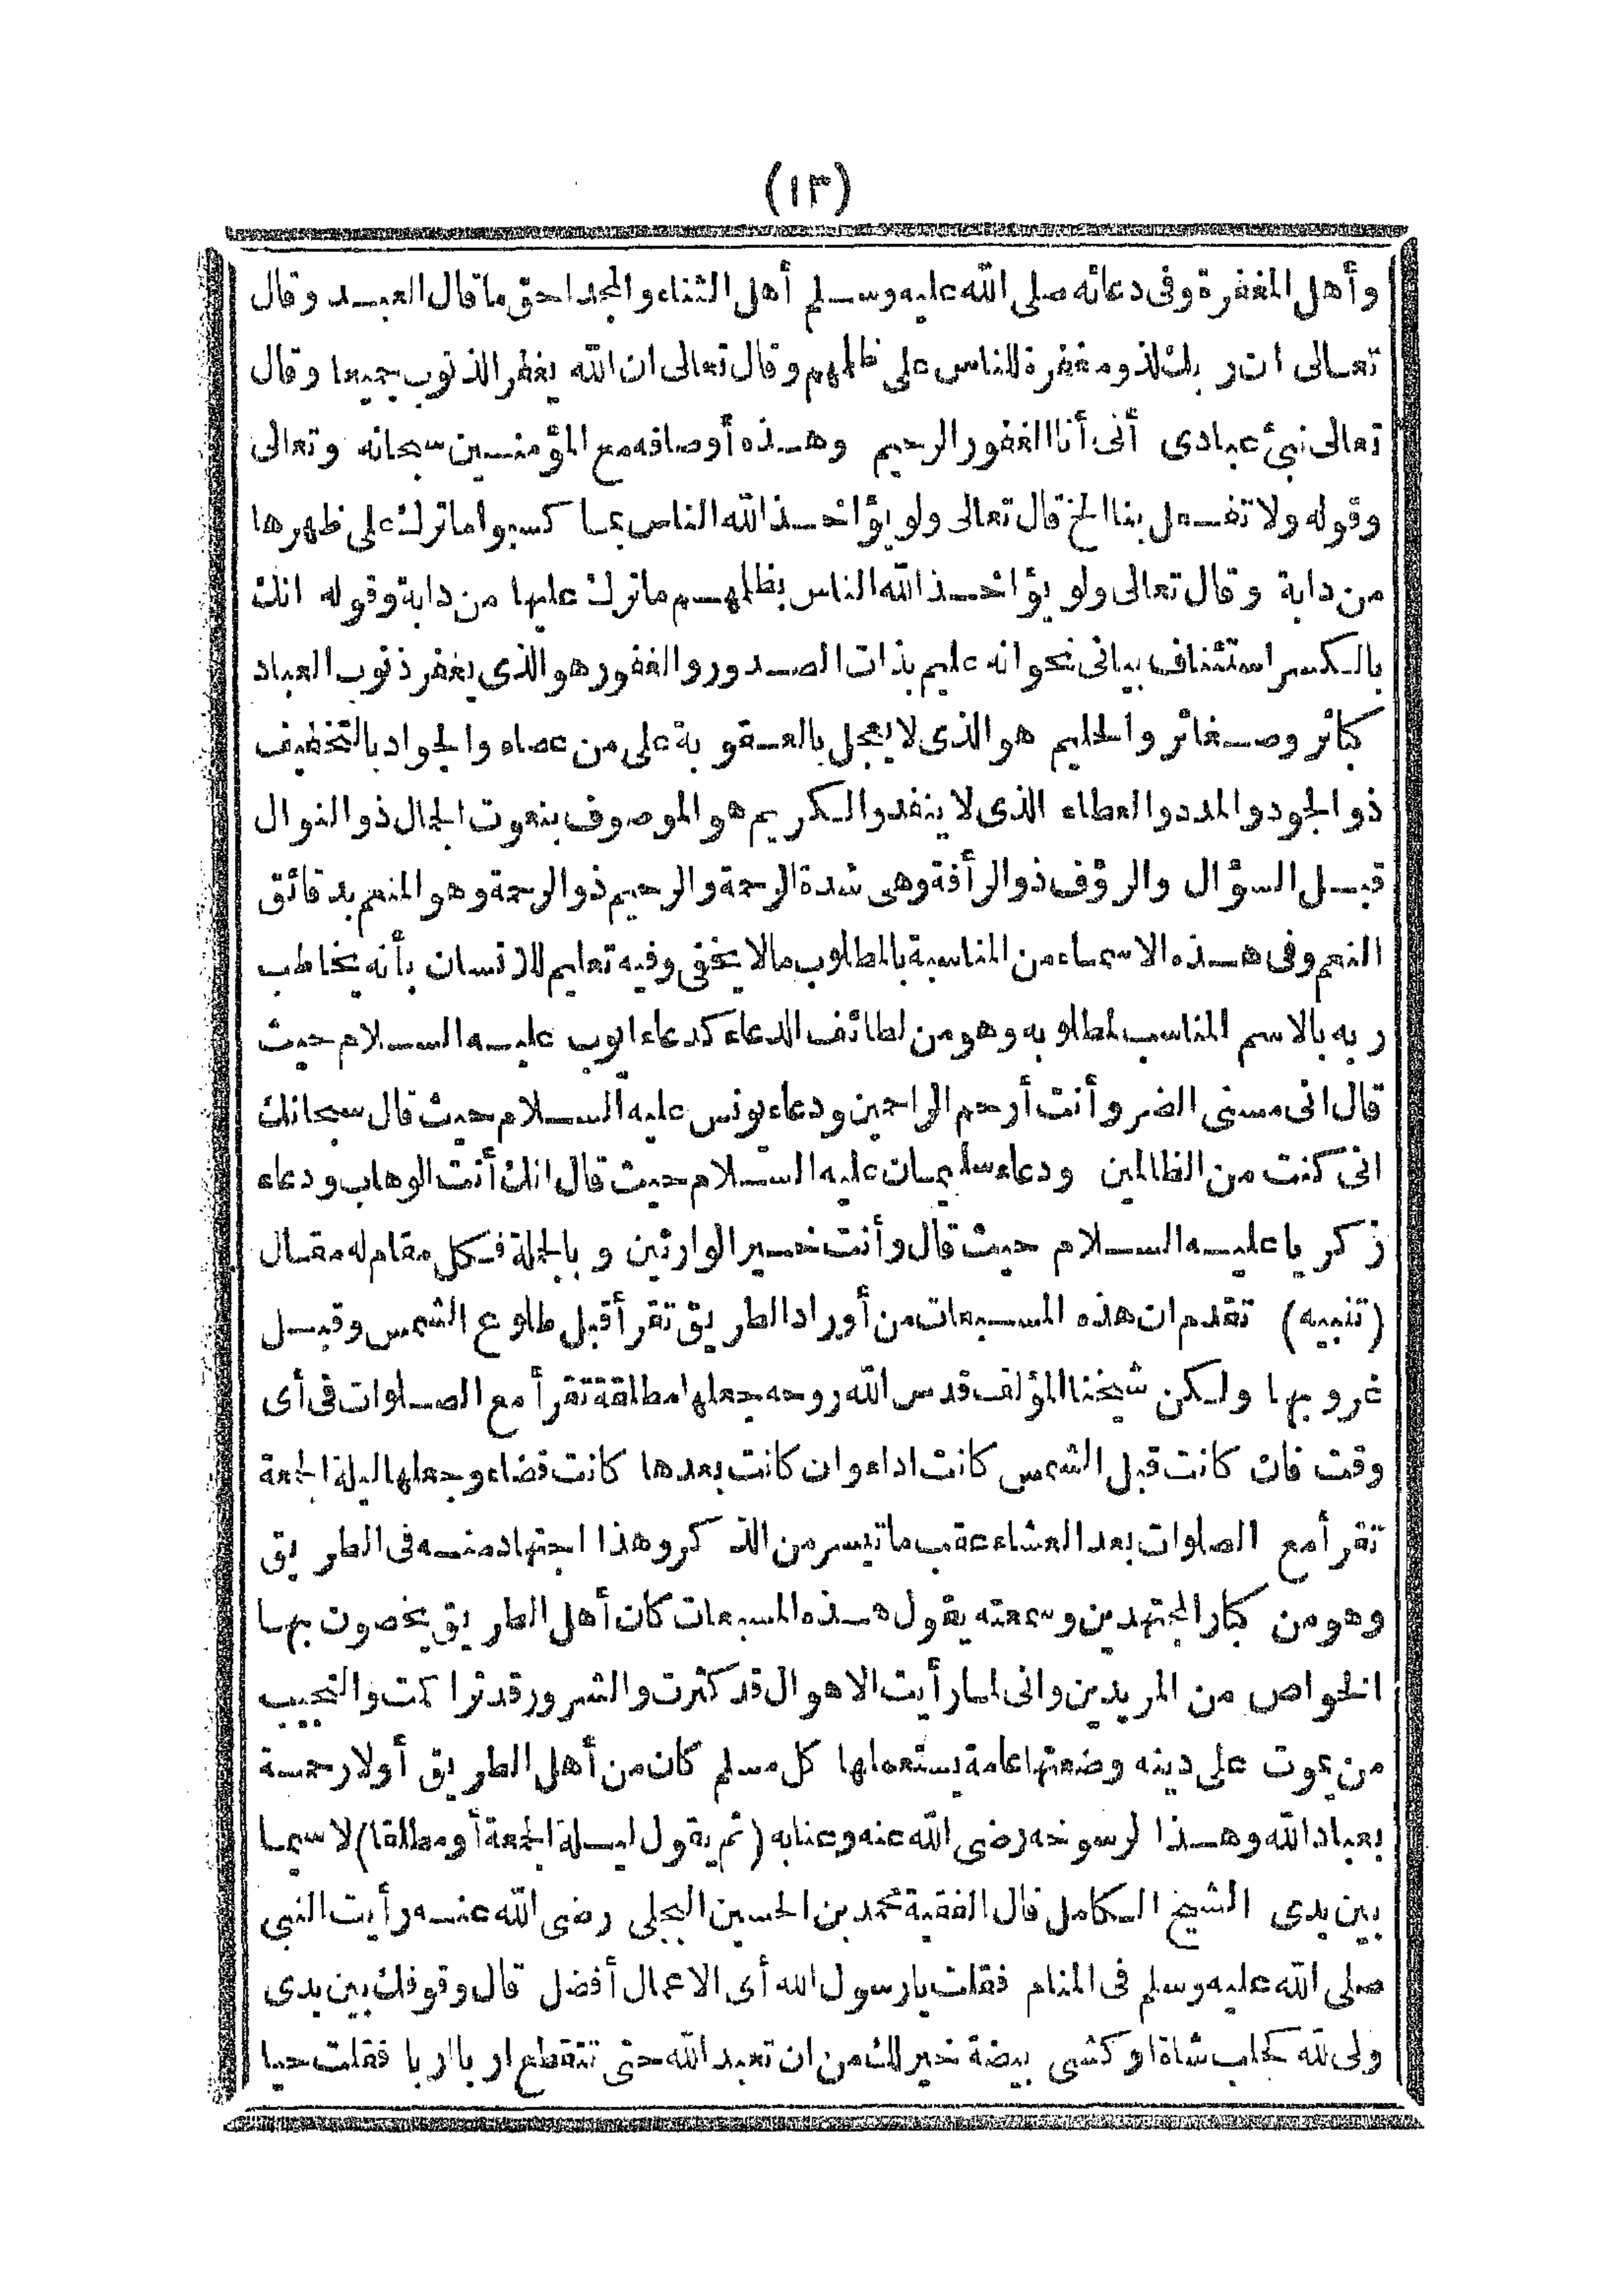 (١٣)
وأهل المغفرة وفى دعائه صلى الله عليه وسلم أهل الثناء والمجد احق ما قال العبد وقال
تعالى ان ربك لذو مغفرة للناس على ظلمهم وقال تعالى ان الله يغفر الذنوب جميعا وقال
تعالى نبئ عبادى أنى أنا الغفور الرحيم وهذه أوصافه مع المؤمنين سبحانه وتعالى
وقوله ولا تفعل بنا الخ قال تعالى ولو يؤاخذ الله الناس بما كسبوا ما ترك على ظهرها
من دابة وقال تعالى ولو يؤاخذ الله الناس بظلمهم ما ترك عليها من دابة وقوله انك
بالكسر استئناف بيانى نحو انه عليم بذات الصدور والغفور هو الذى يغفر ذنوب العباد
كبائر وصغائر والحليم هو الذى لا يعجل بالعقوبة على من عصاه والجواد بالتخفيف
ذو الجود والمدد والعطاء الذى لا ينفد والكريم هو الموصوف بنعوت الجمال ذو النوال
قبل السؤال والرؤف ذو الرأفة وهى شدة الرحمة والرحيم ذو الرحمة وهو المنعم بدقائق
النعم وفى هذه الاسماء من المناسبة بالمطلوب مالا يخفى وفيه تعليم للانسان بأنه يخاطب
ربه بالاسم المناسب لمطلوبه وهو من لطائف الدعاء كدعاء ايوب عليه السلام حيث
قال انى مسنى الضر وأنت أرحم الراحمين ودعاء يونس عليه السلام حيث قال سبحانك
انى كنت من الظالمين ودعاء سليمان عليه السلام حيث قال انك أنت الوهاب ودعاء
زكريا عليه السلام حيث قال وأنت خير الوارثين وبالجملة فكل مقام له مقال
(تنبيه) تقدم ان هذه المسبعات من أوراد الطريق تقرأ قبل طلوع الشمس وقبل
غروبها ولكن شيخنا المؤلف قدس الله روحه جعلها مطلقة تقرأ مع الصلوات فى أى
وقت فان كانت قبل الشمس كانت اداء وان كانت بعدها كانت قضاء وجعلها ليلة الجمعة
تقرأ مع الصلوات بعد العشاء عقب ما تيسر من الذكر وهذا اجتهاد منه فى الطريق
وهو من كبار المجتهدين وسمعته يقول هذه المسبعات كان أهل الطريق يخصون بها
الخواص من المريدين وانى لما رأيت الاهوال قد كثرت والشرور قد تراكمت والعجيب
من يموت على دينه وضعتها عامة يستعملها كل مسلم كان من أهل الطريق أولا رحمة
بعباد الله وهذا لرسوخه رضى الله عنه وعنا به (ثم يقول ليلة الجمعة أو مطلقا) لا سيما
بين يدى الشيخ الكامل قال الفقيه محمد بن الحسين البجلى رضى الله عنه رأيت النبى
صلى الله عليه وسلم فى المنام فقلت يا رسول الله أى الاعمال أفضل قال وقوفك بين يدى
ولى لله كحلب شاة او كشى بيضة خير لك من ان تعبد الله حتى تتقطع اربا اربا فقلت حيا